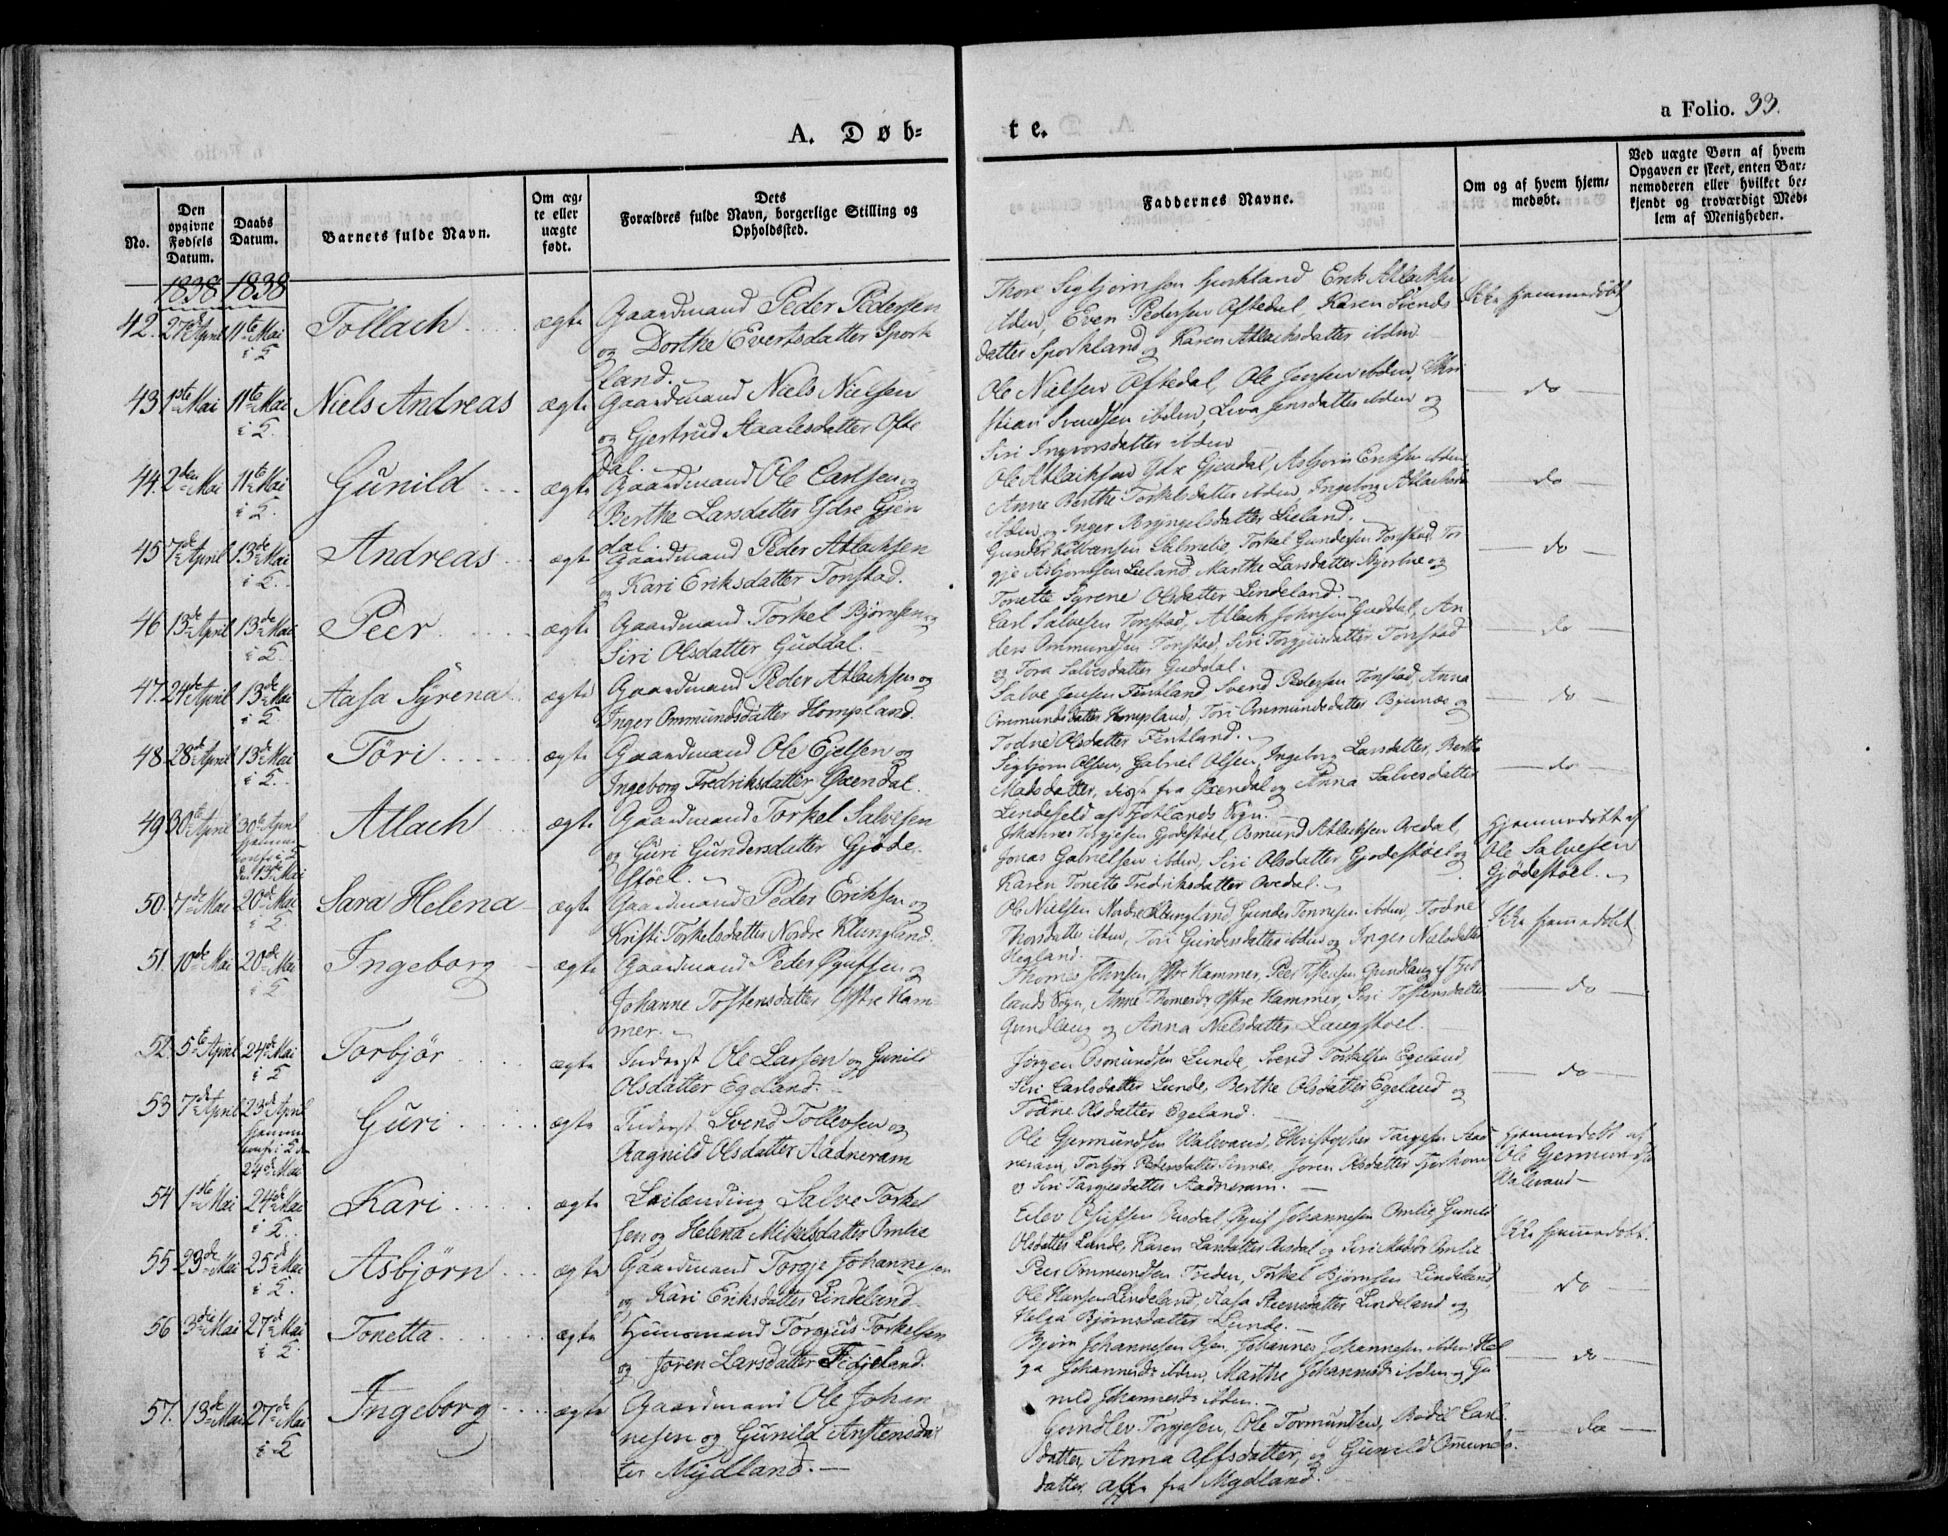 a Folio. 33.
A. Døb-
te.
No.
Den opgivne Fødsels Datum.
Daabs Datum.
Barnets fulde Navn.
Om ægte eller uægte født.
Dets
Forældres fulde Navn, borgerlige Stilling og
Opholdssted.
Faddernes Navne.
Om og af hvem hjem-
medøbt.
Ved uægte Børn af hvem
Opgaven er skeet, enten Bar-
nemoderen eller hvilket be-
kjendt og troværdigt Med-
lem af Menigheden.
1838 1838
42. 27de April 11te Mai i K. Tollach ægte
Gaardmand Peder Pedersen
og Dorthe Evertsdatter Spork
land.
Thore Sigbjørnsen Sporkland Erik Atlachsen
ibden, Even Pedersen Oftedal, Karen Svends
datter Sporkland og Karen Atlachsdatter ibden
Ikke hjemmedøbt
43 1ste Mai 11te Mai i K. Niels Andreas ægte
Gaardmand Niels Nielsen
og Gjertrud Aanlesdatter Ofte
dal.
Ole Nielsen Oftedal, Ole Jensen ibden, Chri
stian Svendsen ibden, Liva Jensdatter ibden og
Siri Ingvorsdatter ibden
do
44. 2den Mai 11te Mai i K. Gunild ægte
Gaardmand Ole Carlsen og
Berthe Larsdatter Ydre Gjen
dal.
Ole Atlachsen Ydre Gjendal, Asbjørn Eriksen ibden
Anne Berthe Torkelsdatter ibden, Ingeborg Atlachsdr
ibden og Inger Bryngelsdatter Lieland.
do
45 7de April 13de Mai i K. Andreas ægte
Gaardmand Peder Atlachsen
og Kari Eriksdatter Tonstad.
Gunder Salmelie, Torkel Gundersen Tonstad, Tor
gje Asbjørnsen Lieland, Marthe Larsdatter og
Tonette Syrene Olsdatter Lindeland.
do
46 13de April 13de Mai i K. Peer ægte
Gaardmand Torkel Bjørnsen og
Siri Olsdatter Guddal.
Carl Salvesen Tonstad, Atlach Johnsen Guddal, An
ders Ommundsen Tonstad, Siri Torgjusdatter Tonstad
og Tora Salvesdatter Guddal.
do
47. 24de April 13de Mai i K. Aasa Syrena ægte
Gaardmand Peder Atlachsen og
Inger Ommundsdatter Hompland.
Salve Jensen Fintland, Svend Pedersen Tonstad, Anna
Ommundsdatter Hompland, Tori Ommundsdatter og
Todne Olsdatter Fintland.
do
48 28de April 13de Mai i K. Töri ægte
Gaardmand Ole Ejelsen og
Ingeborg Fredriksdatter Oxendal.
Sigbjørn Olsen, Gabriel Olsen, Ingeborg Larsdatter, Berthe
Madsdatter, disse fra Oxendal og Anna Salvesdatter
Lindefield af Fjotlands Sogn.
do
49 30te April 30te April hjemme conf. i K den 13de Mai Atlach ægte
Gaardmand Torkel Salvesen
og Guri Gundersdatter Gjøde
støel.
Johannes Torgjesen Gjødestøel, Osmund Atlachsen Avedal,
Jonas Gabrielsen ibden, Siri Olsdatter Gjødestøel og
Karen Tonette Fredriksdatter Avedal.
Hjemmedøbt af
Ole Salvesen
Gjødestøel.
50. 7de Mai 20de Mai i K. Sara Helena ægte
Gaardmand Peder Eriksen og
Kristi Torkelsdatter Nordre Klungland.
Ole Nielsen Nordre Klungland, Gunder Tonnesen ibden, Todne
Thorsdatter ibden, Tori Gundersdatter ibden og Inger Nielsdatter
Hegland.
Ikke hjemmedøbt
51. 10de Mai 20de Mai i K Ingeborg ægte
Gaardmand Peder Øyufsen og
Johanne Tostensdatter Østre Ham
mer.
Thomas Johnsen Østre Hammer, Peer Gundlaug af Fjot
lands Sogn, Anne Thomasdr Østre Hammer, Siri Tostensdatter
Gundlaug og Anna Nielsdatter Langstøel.
do
52. 5te April 24de Mai i K Torbjør ægte
Inderst Ole Larsen og Gunild
Olsdatter Egeland.
Jørgen Osmundsen Lunde, Svend Torkelsen Egeland
Siri Carlsdatter Lunde, Berthe Olsdatter Egeland og
Todne Olsdatter Egeland.
do
53 7de April 23de April hjemme conf. i K den 24de Mai Guri ægte
Inderst Svend Tollevsen og
Ragnild Olsdatter Aadneram
Ole Gjermundsen Walevand, Christopher Targjesen Aad
neram, Torbjør Pedersdatter Sinnes, Joren Olsdatter
og Siri Targjesdatter Aadneram.
Hjemmedøbt af
Ole Gjermundsen
Walevand
54 1ste Mai 24de Mai i K. Kari ægte
Leilænding Salve Torkel
sen og Helena Mikelsdatter Omlie
Eilev Osulfsen Ousdal, Øyuf Johannesen Omlie, Gunild
Olsdatter Lunde, Karen Larsdatter Ousdal og Siri Madsdr Omlie
Ikke hjemmedøbt.
55 23de Mai 25de Mai i K. Asbjørn ægte
Gaardmand Torgje Johannesen
og Kari Eriksdatter Lindeland
Peer Ommundsen Træden, Torkel Bjørnsen Lindeland
Ole Hansen Lindeland, Aasa Steensdatter Lindeland og
Helga Bjørnsdatter Lunde.
do
56 3die Mai 27de Mai i K Tonetta ægte
Huusmand Torgjus Torkelsen
og Joren Larsdatter Fidjeland.
Bjørn Johannesen Øjen, Johannes Johannesen ibden, Hel
ga Johannesdr ibden, Marthe Johannesdr ibden og Gu
nild Johannesdr ibden.
do
57. 13de Mai 27de Mai i K Ingeborg ægte
Gaardmand Ole Johan
nesen og Gunild Anstensdat
ter Mydland.
Gundlev Torgjesen, Ole Tormundsen, Bodil Carls
datter, Anna Alfsdatter, og Gunild Omunds
datter, alle fra Mydland.
do